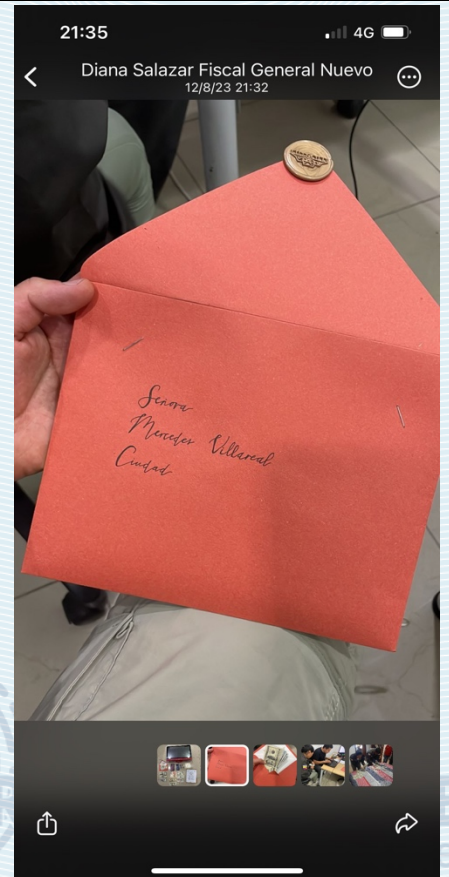 21:35
4G
Diana Salazar Fiscal General Nuevo
12/8/23 21:32
Señora
Mercedes Villareal
Ciudad